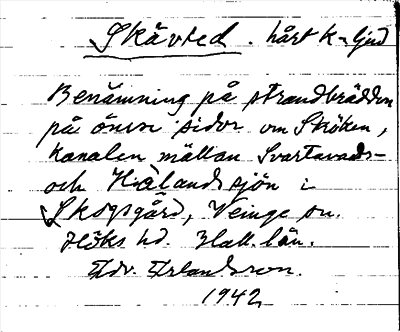 Skävred. hårt k-ljud
Benämning på strandbrädden
på ömse sidor om Sköken,
kanalen mellan Svartavads-
och Hålandssjön i
Skogsgård, Veinge sn.
Höks hd. Hall. län.
Edv. Erlandsson.
1942